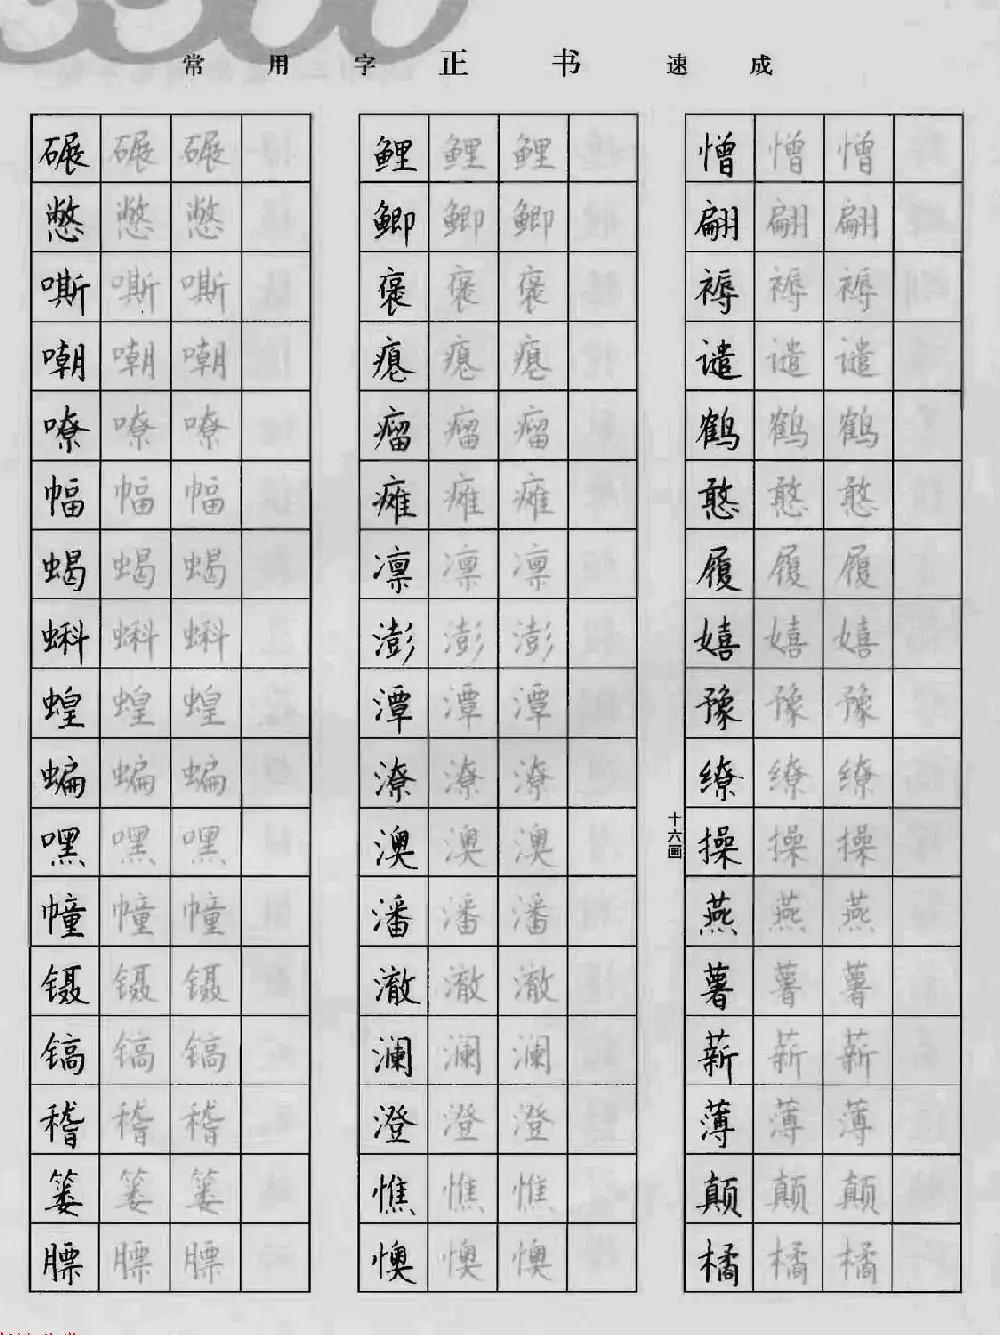 常用字正书速成
碾碾碾
憋憋憋
嘶嘶嘶
嘲嘲嘲
嘹嘹嘹
幅幅幅
蝎蝎蝎
蝌蝌蝌
蝗蝗蝗
蝙蝙蝙
嘿嘿嘿
幢幢幢
镊镊镊
镐镐镐
稽稽稽
篓篓篓
膘膘膘
鲤鲤鲤
鲫鲫鲫
褒褒褒
瘪瘪瘪
瘤瘤瘤
瘫瘫瘫
凛凛凛
澎澎澎
潭潭潭
潦潦潦
澳澳澳
潘潘潘
澈澈澈
澜澜澜
澄澄澄
憔憔憔
懊懊懊
憎憎憎
翩翩翩
褥褥褥
谴谴谴
鹤鹤鹤
憨憨憨
履履履
嬉嬉嬉
豫豫豫
缭缭缭
十六画
操操操
燕燕燕
薯薯薯
薪薪薪
薄薄薄
颠颠颠
橘橘橘